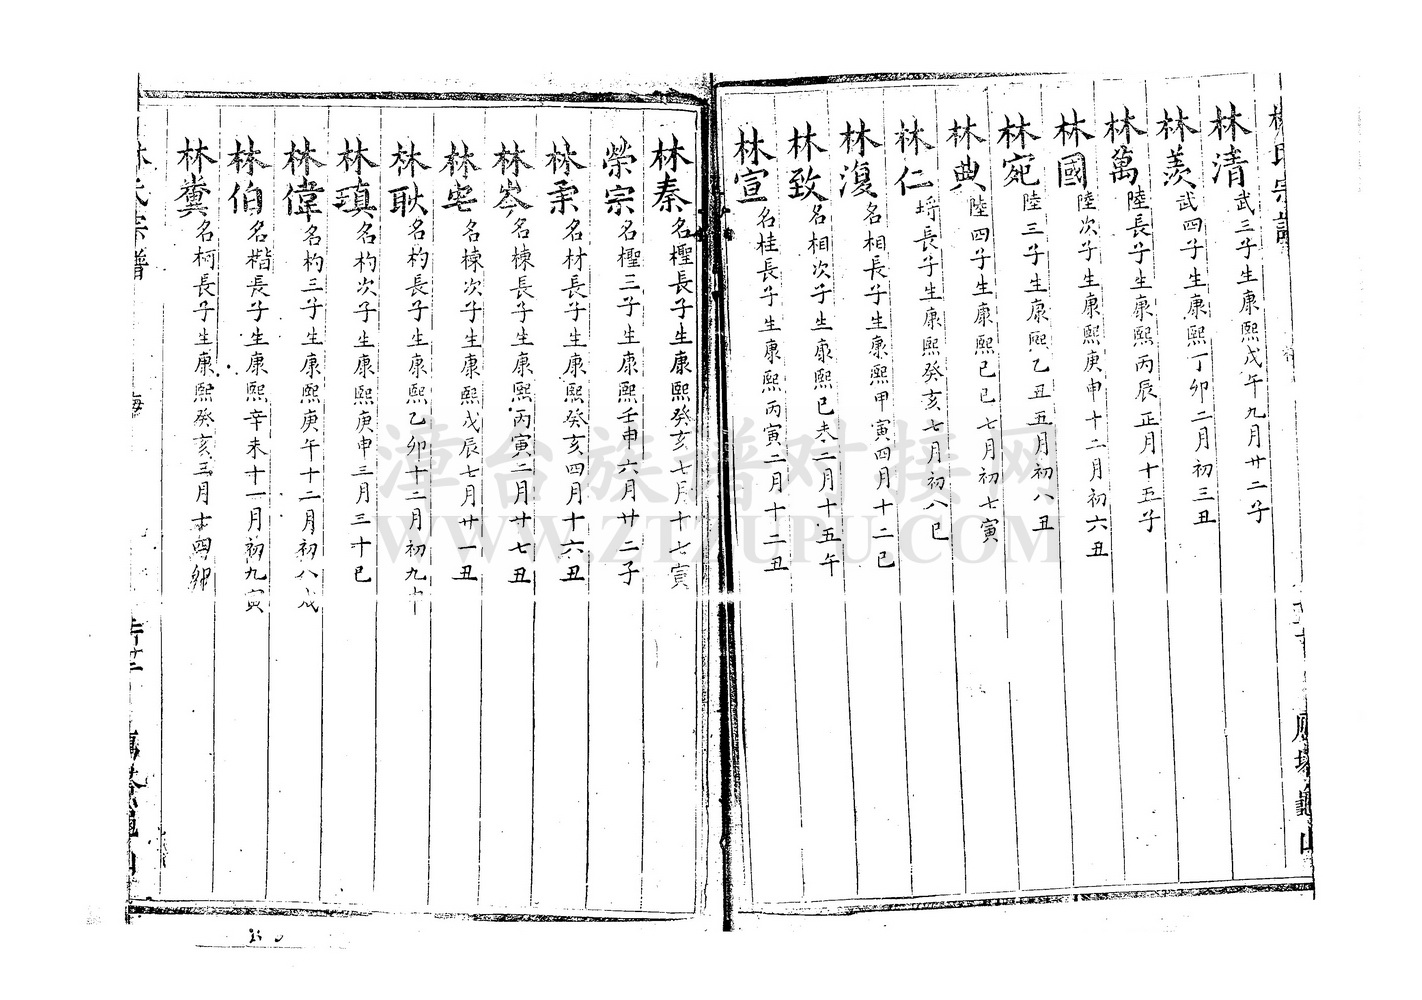 林清武三子生康熙戊午九月廿二子
林羨武四子生康熙丁卯二月初三丑
林萬陸長子生康熙丙辰正月十五子
林國陸次子生康熙庚申十二月初六丑
林宛陸三子生康熙乙丑五月初八丑
林典陸四子生康熙己巳七月初七寅
林仁埓長子生康熙癸亥七月初八巳
林復名相長子生康熙甲寅四月十二巳
林致名相次子生康熙己未二月十五午
林宣名桂長子生康熙丙寅二月十二丑
林秦名檉長子生康熙癸亥七月十七寅
榮宗名檉三子生康熙壬申六月廿二子
林柔名材長子生康熙癸亥四月十六丑
林岑名棟長子生康熙丙寅二月廿七丑
林宅名棟次子生康熙戊辰七月廿一丑
林耿名杓長子生康熙乙卯十二月初九申
林瑱名杓次子生康熙庚申三月三十巳
林偉名杓三子生康熙庚午十二月初八戌
林伯名楷長子生康熙辛未十一月初九寅
林糞名柯長子生康熙癸亥三月十四卯
林氏宗譜
漳台族谱对接网
WWW.ZTZUPU.COM